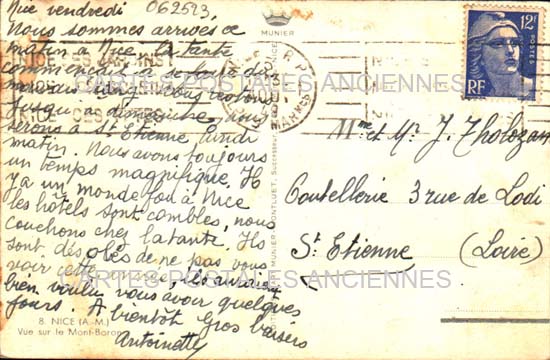 Nice vendredi 062523
Nous sommes arrivés ce
matin à Nice la tante
à se
mauvais
jusqu'à dimanche, nous
serons à St Etienne lundi
matin. Nous avons toujours
un temps magnifique. Il
y a un monde fou à Nice
les hôtels sont combles, nous
couchons chez la tante. Ils
sont désolés de ne pas vous
voir cette année, ils auraient
bien voulu vous avoir quelques
jours. A bientôt Gros baisers
Antoinette
8. NICE (A.-M.)
Vue sur le Mont-Boron
MUNIER
12F
POSTES
RF
Mme et Mr J. Tholozan
Coutellerie 3 rue de Lodi
St Etienne (Loire)
CARTES POSTALES ANCIENNES
CARTES POSTALES ANCIENNES